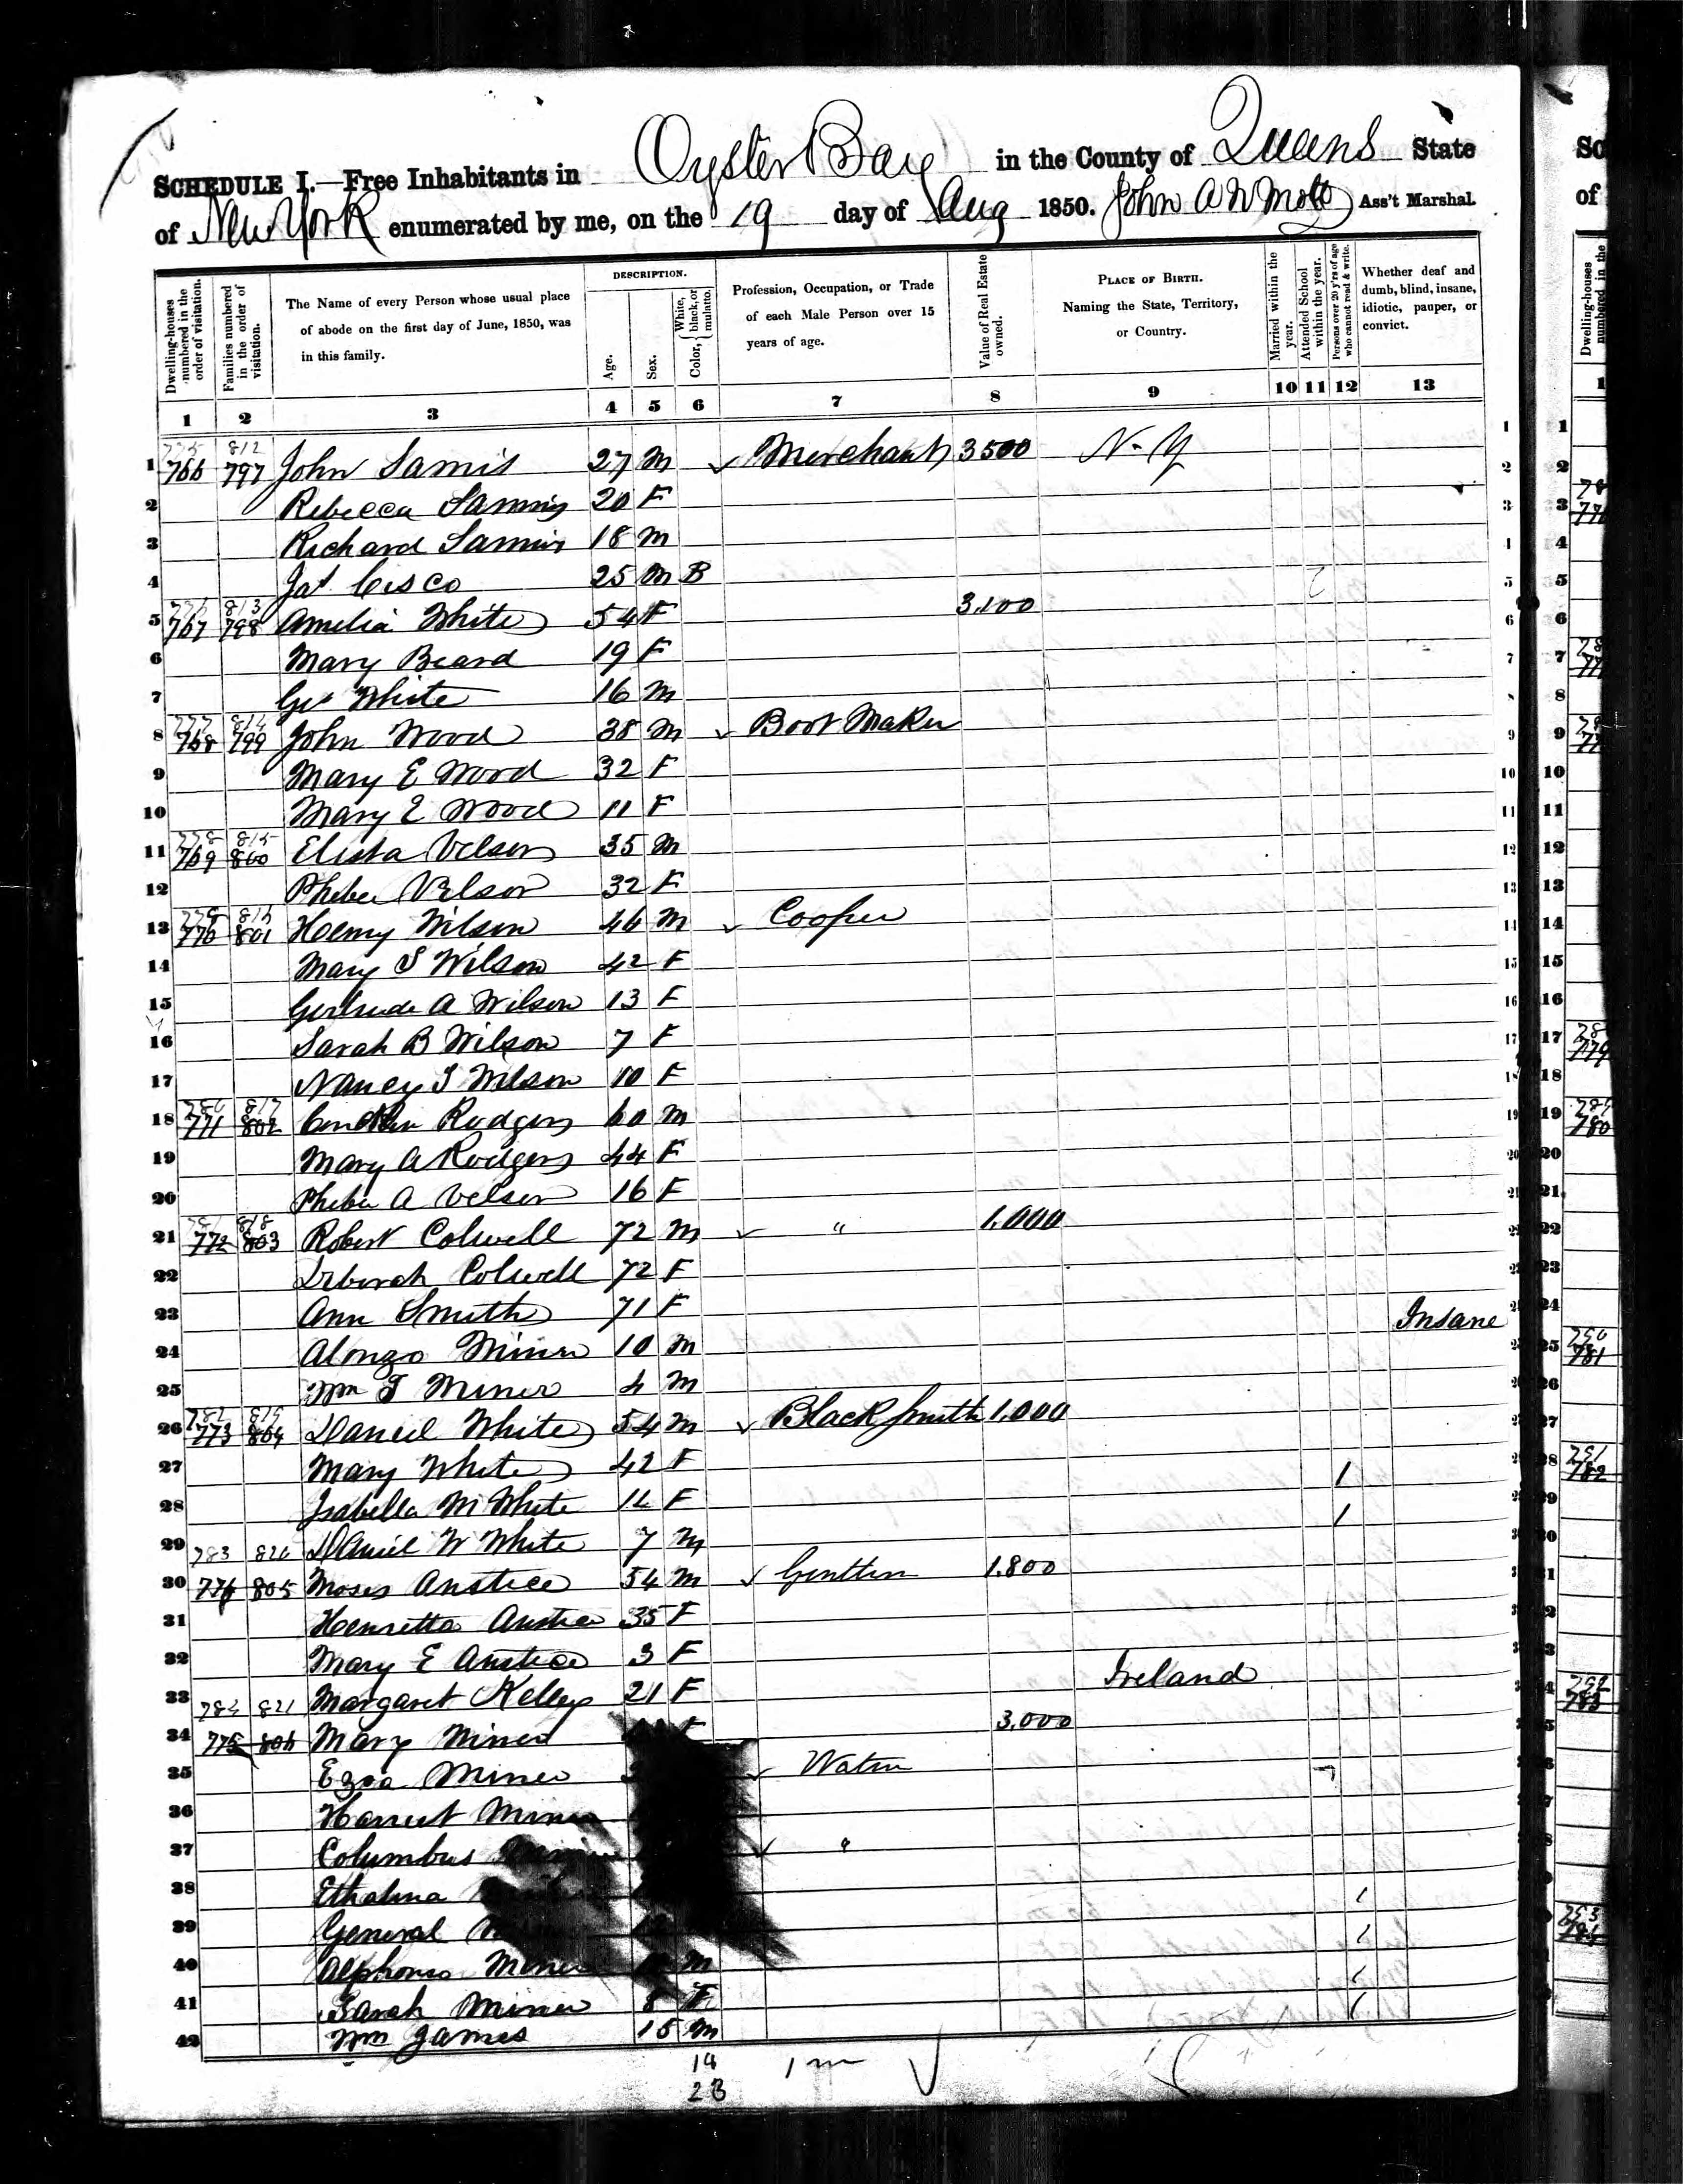 SCHEDULE I.—Free Inhabitants in Oyster Bay in the County of Queens State
of New York enumerated by me, on the 19 day of Aug 1850. John A W Mott Ass't Marshal.
Dwelling-houses numbered in the order of visitation.
Families numbered in the order of visitation.
The Name of every Person whose usual place of abode on the first day of June, 1850, was in this family.
DESCRIPTION.
Age.
Sex.
Color, White, black, or mulatto.
Profession, Occupation, or Trade of each Male Person over 15 years of age.
Value of Real Estate owned.
PLACE OF BIRTH. Naming the State, Territory, or Country.
Married within the year.
Attended School within the year.
Persons over 20 y'rs of age who cannot read & write.
Whether deaf and dumb, blind, insane, idiotic, pauper, or convict.
1 2 3 4 5 6 7 8 9 10 11 12 13
812
1 766 797 John Samis 27 M Merchant 3500 N-Y
2 Rebecca Sammis 20 F
3 Richard Sammis 18 M
4 Jas Cisco 25 M B
813
5 767 798 Amelia White 54 F 3.100
6 Mary Beard 19 F
7 Geo White 16 M
777 814
8 768 799 John Wood 38 M Boot Maker
9 Mary E Wood 32 F
10 Mary E Wood 11 F
778 815
11 769 800 Elisha Velsor 35 M
12 Phebe Velsor 32 F
13 770 801 Henry Wilson 46 M Cooper
14 Mary S Wilson 42 F
15 Gertrude A Wilson 13 F
16 Sarah B Wilson 7 F
17 Nancy S Wilson 10 F
780 817
18 771 802 Rodgers 60 M
19 Mary A Rodgers 44 F
20 Phebe A Velsor 16 F
818
21 772 803 Robert Colwell 72 M " 1.000
22 Deborah Colwell 72 F
23 Ann Smith 71 F Insane
24 Alonzo Miner 10 M
25 Wm T Miner 4 M
782 819
26 773 804 Daniel White 54 M Black Smith 1.000
27 Mary White 42 F 1
28 Isabella M White F 1
29 783 820 Daniel W White 7 M
30 774 805 Moses Anstice 54 M 1.800
31 Henrietta Anstice 35 F
32 Mary E Anstice 3 F
33 784 821 Margaret Kelley 21 F Ireland
34 775 806 Mary Miner F 3.000
35 Ezra Miner
36 Harriet Miner
37 Columbus "
38 Ethalina 1
39 General 1
40 Alphonso Miner M 1
41 Sarah Miner 8 F 1
42 Wm James 15 M
14 1 m
2 B